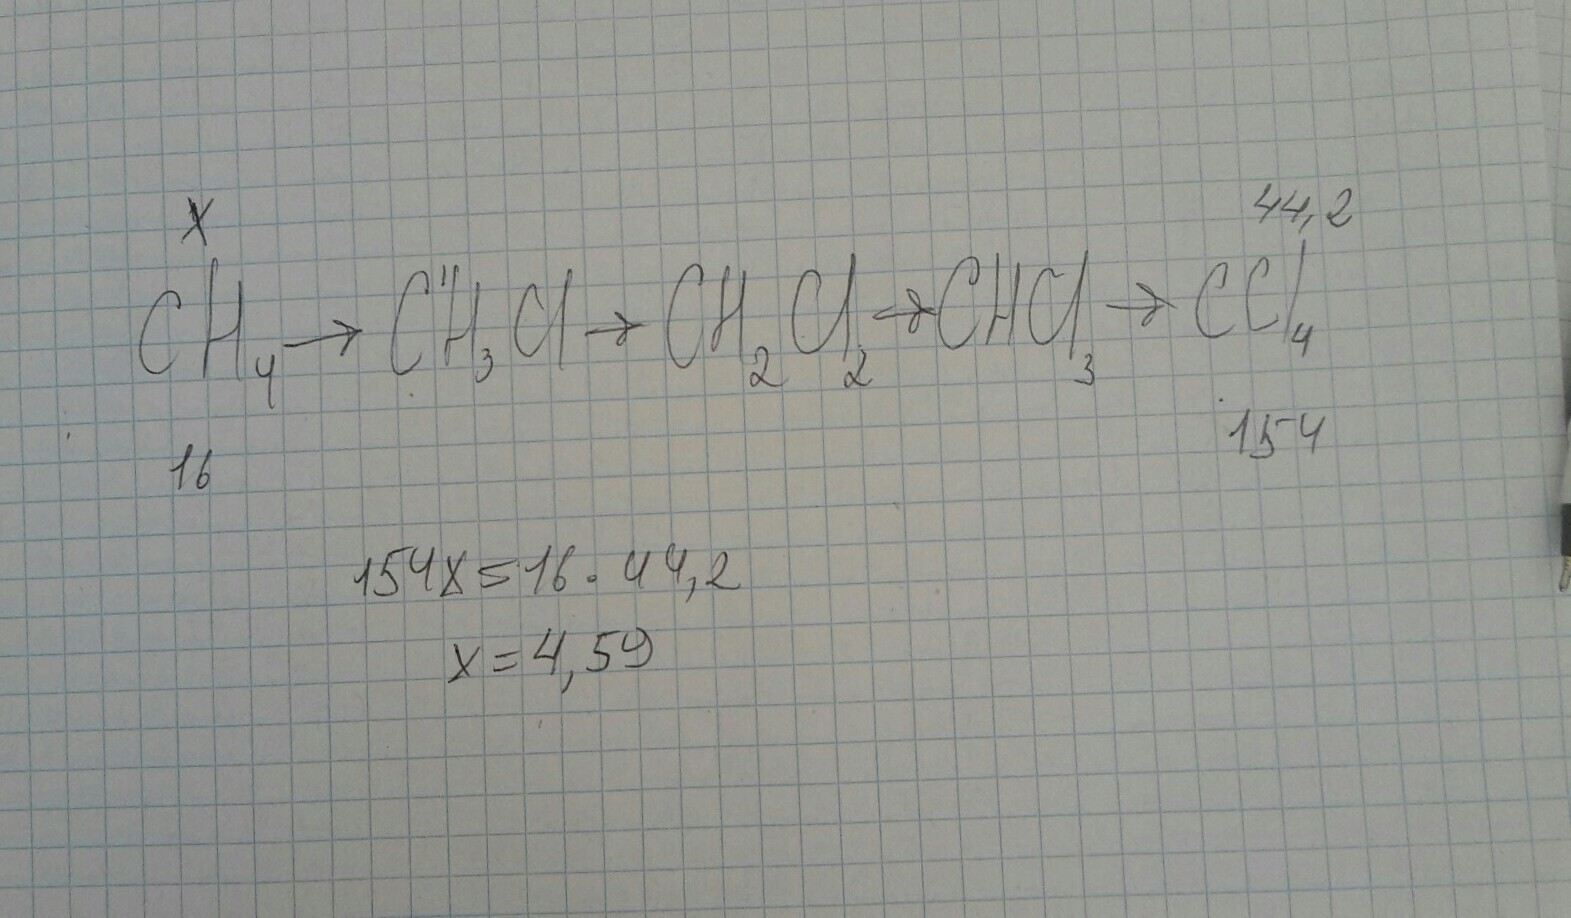 x 44,2
CH4 → CH3Cl → CH2Cl2 → CHCl3 → CCl4
16 154
154x = 16 · 44,2
x = 4,59